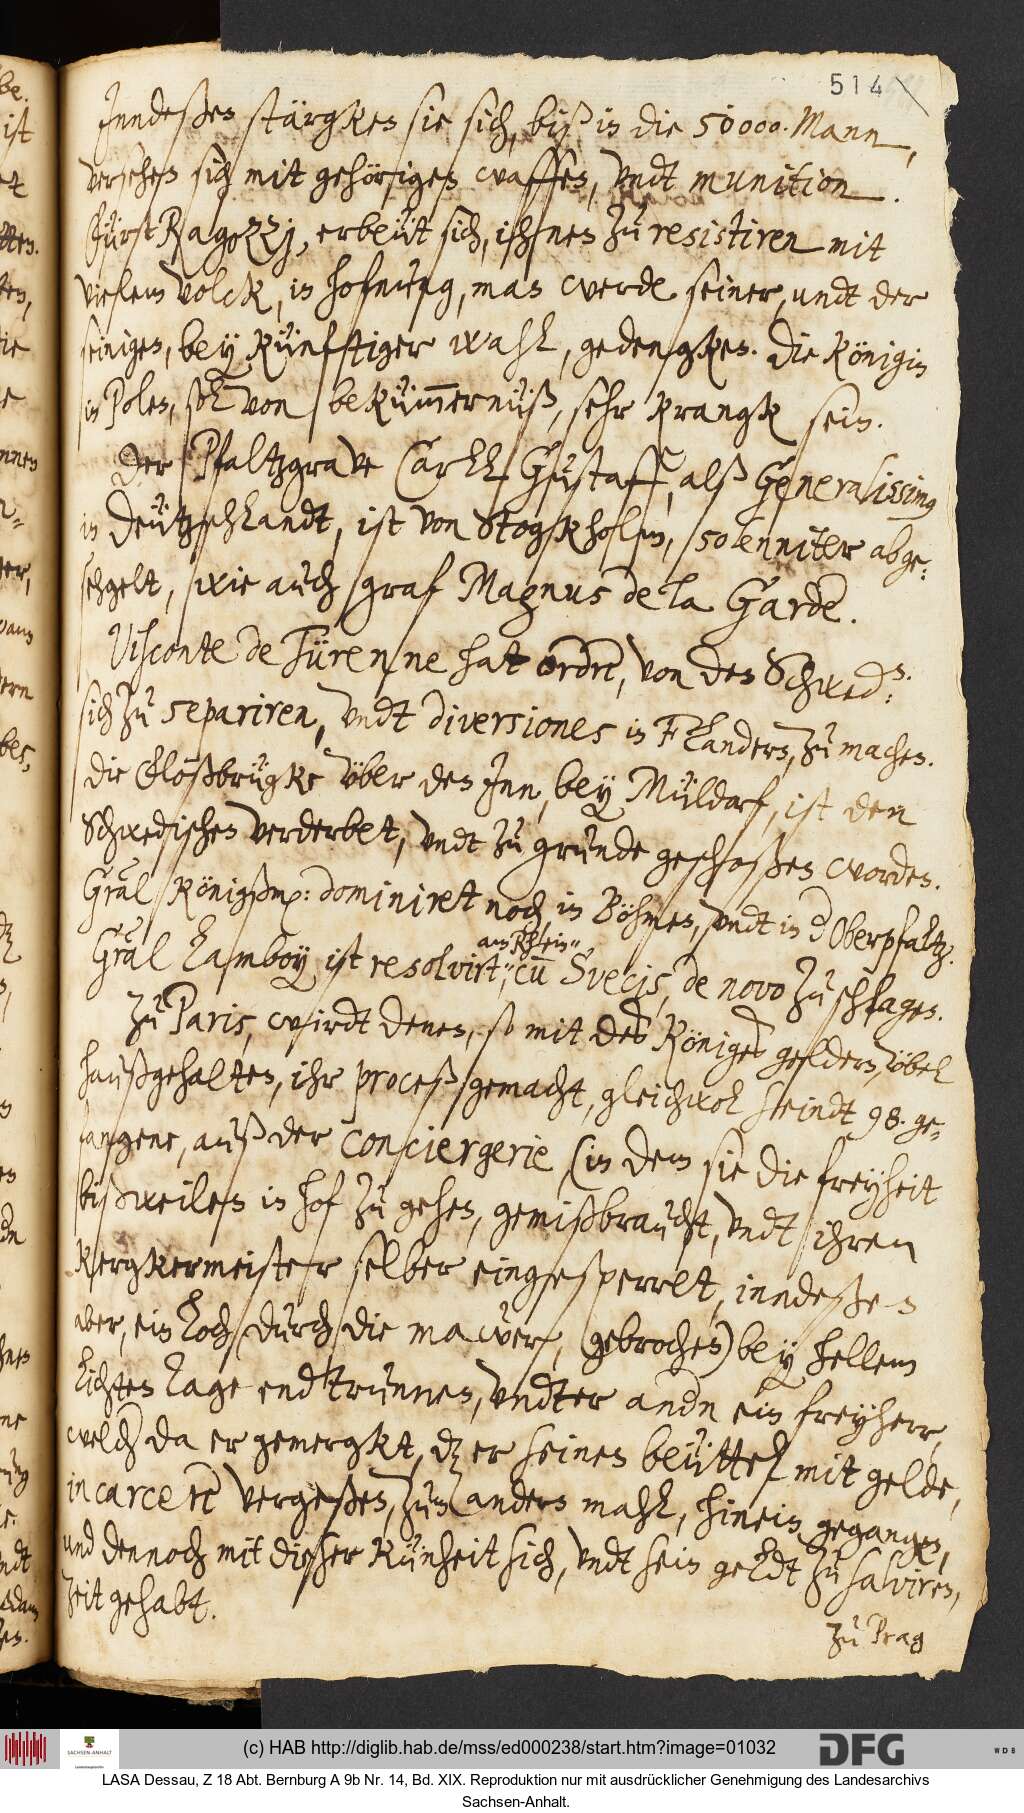 514
Inndeßen stärgken sie sich, biß in die 50000. Mann,
versehen sich mit gehörigen waffen, undt munition.
Fürst Ragozzj, erbeüt sich, ihnen zu resistiren mit
vielem volck, in hofnung, man werde seiner, undt der
seinigen, bey künftiger wahl, gedengken. Die Königin
in Polen, soll von bekümmernüß, sehr krangk sein.
Der Pfaltzgrave Carll Gustaff, alß Generalissimg
in Deützschlandt, ist von Stogkholm, solenniter abge¬
sehgelt, wie auch graf Magnus de la Garde.
Visconte de Türenne hat ordre, von den Schwed:
sich zu separiren, undt diversiones in Flandern, zu machen.
Die Flößbrügke über den Inn, bey Müldorf, ist den
Schwedischen verderbet, undt zu grunde geschoßen worden.
Gral Königßm: dominiret noch in Böhmen, undt in d Oberpfaltz.
am Rhein
Gral Lamboy ist resolvirt, cum Svecis, de novo zu schlagen.
Zu Paris, wirdt denen, so mit des Königes geldern, übel
haußgehalten, ihr proceß gemacht, gleichwol seindt 98. ge¬
fangene, auß der Conciergerie (in dem sie die freyheit
bißweilen in hof zu gehen, gemißbraucht, undt ihren
Kergkermeister selber eingesperret, inndeßen
aber, ein loch durch die mawer, gebrochen) bey hellem
lichten tage endtrunnen, undter andn ein freyherr,
welch da er gemergkt, dz er seinen beüttel mit gelde,
in carcere vergeßen, zum andern mahl, hinein gegangen,
und dennoch mit dieser künheit sich, undt sein geldt zu salviren,
zeit gehabt.
Zu Prag
(c) HAB http://diglib.hab.de/mss/ed000238/start.htm?image=01032
SACHSEN-ANHALT
DFG
WDB
LASA Dessau, Z 18 Abt. Bernburg A 9b Nr. 14, Bd. XIX. Reproduktion nur mit ausdrücklicher Genehmigung des Landesarchivs
Sachsen-Anhalt.